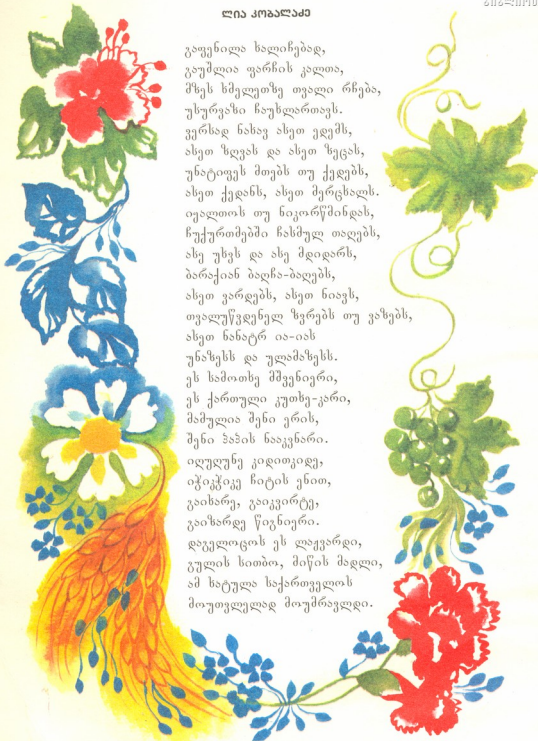 ლია კობალაძე
გაფენილა ხალიჩებად,
გაუშლია ფარჩის კალთა,
მზეს ხმელეთზე თვალი რჩება,
უსურვაზი ჩაუხლართავს.
ვერსად ნახავ ასეთ ედემს,
ასეთ ზღვას და ასეთ ზეცას,
უნატიფეს მთებს თუ ქედებს,
ასეთ ქედანს, ასეთ მერცხალს.
იყალთოს თუ ნიკორწმინდას,
ჩუქურთმებში ჩასმულ თაღებს,
ასე უხვს და ასე მდიდარს,
ბარაქიან ბაღჩა-ბაღებს,
ასეთ ვარდებს, ასეთ ნიავს,
თვალუწვდენელ ზვრებს თუ ვაზებს,
ასეთ ნანატრ ია-იას
უნაზესს და ულამაზესს.
ეს სამოთხე მშვენიერი,
ეს ქართული კუთხე-კარი,
მამულია შენი ერის,
შენი პაპის ნააკვნარი.
იღუღუნე კიდითკიდე,
იჭიკჭიკე ჩიტის ენით,
გაიხარე, გაიკვირტე,
გაიზარდე წიგნიერი.
დაგელოცოს ეს ლაჟვარდი,
გულის სითბო, მიწის მადლი,
ამ ხატულა საქართველოს
მოუთვლელად მოუმრავლდი.